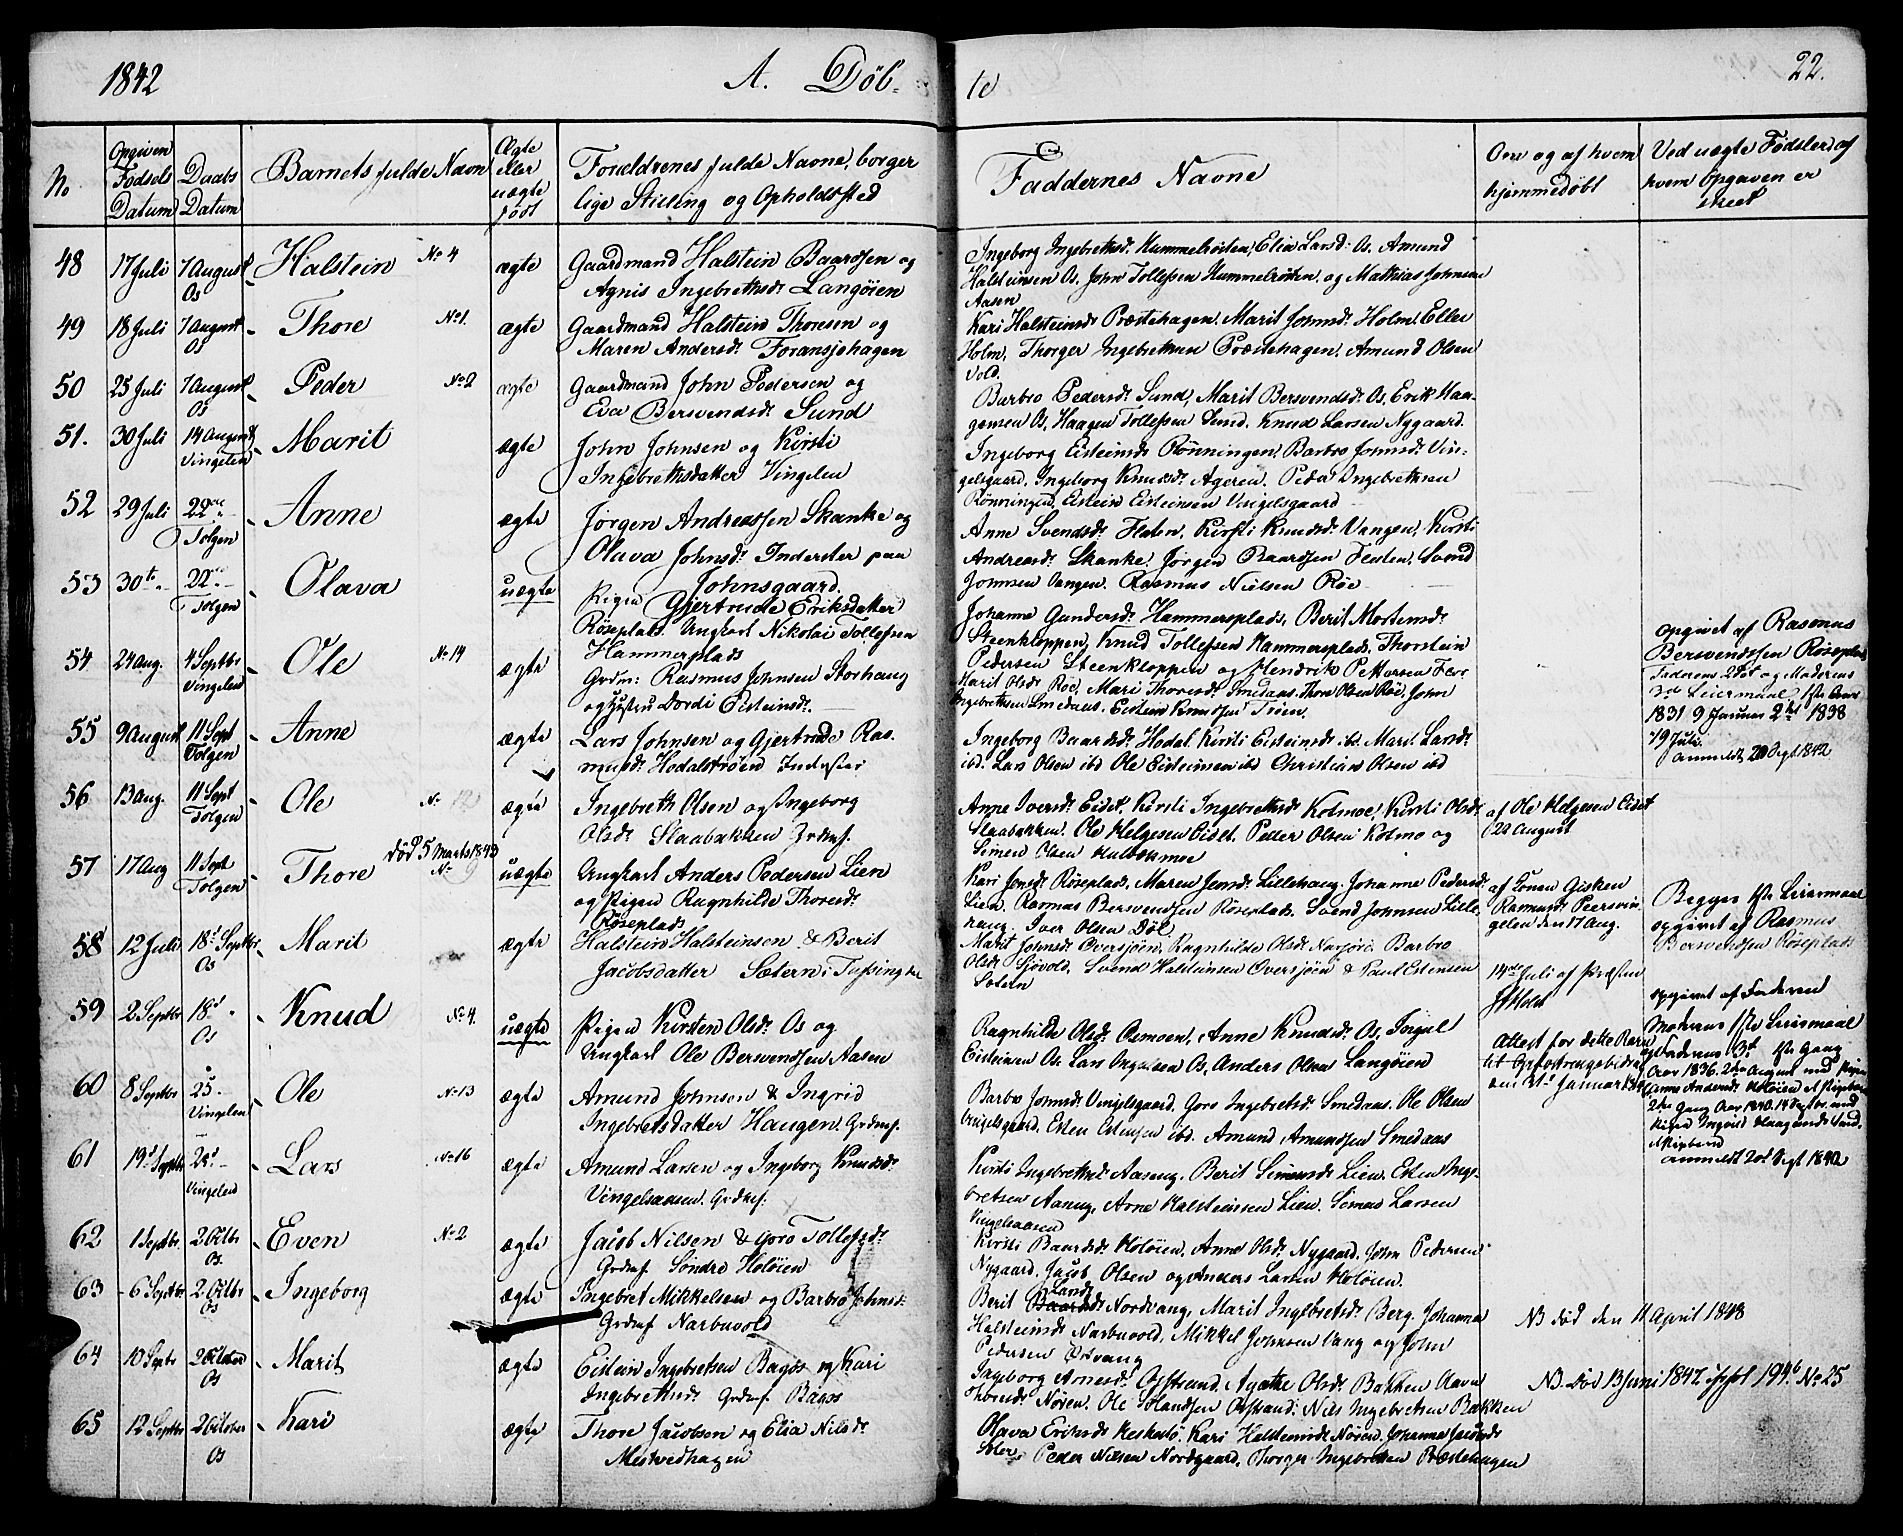 1842 A. Døb- te 22.
No
Opgiven Fødsels Datum
Daabs Datum
Barnets fulde Navn
Ægte eller uægte født
Forældrenes fulde Navne, borger
lige Stilling og Opholdssted
Faddernes Navne
Om og af hvem
hjemmedøbt
Ved uægte Fødsler af
hvem Opgaven er
skeet
48 17 Juli 7 August Os Halstein No 4 ægte
Gaardmand Halstein Baardsen og
Agnis Ingebrethsdr Langøien
Ingeborg Ingebrethsdr Hummelvolden, Elia Larsdr Os, Amund
Halsteinsen Os, John Tollefsen Hummelvolden, og Mathias Johnsen
Aasen
49 18 Juli 7 August Os Thore No 1. ægte
Gaardmand Halstein Thoresen og
Maren Andersdr Foransjøhagen
Kari Halsteinsdr Præstehagen, Marit Johnsdr Holm, Eller
Holm, Thorger Ingebrethsen Præstehagen, Amund Olsen
Vold.
50 25 Juli 7 August Os Peder No 2 ægte
Gaardmand John Pedersen og
Eva Bersvendsdr Sund
Barbro Pedersdr Sund, Marit Bersvendsdr Os, Erik Haa-
gensen Os, Haagen Tollefsen Sund, Knud Larsen Nygaard.
51. 30 Juli 14 August Vingelen Marit ægte
John Johnsen og Kirsti
Ingebrethsdatter Vingelen
Ingeborg Eisteinsdr Rønningen, Barbro Johnsdr Vin-
gelsgaard, Ingeborg Knudsdr Ageren, Peder Ingebrethsen
Rønningen, Eistein Eisteinsen Vingelsgaard
52 29 Juli 22de Tolgen Anne ægte
Jørgen Andreassen Skanke og
Olava Johnsdr Inderster paa
Johnsgaard.
Anne Svendsdr Floten, Kirsti Knudsdr Vangen, Kirsti
Andreasdr Skanke, Jørgen Baardsen Festen, Svend
Johnsen Vangen, Rasmus Nielsen Røe
53 30te 22de Tolgen Olava uægte
Pigen Gjertrude Eriksdatter
Røseplads. Ungkarl Nikolai Tollefsen
Hammerplads
Johanne Gundersdr Hammersplads, Berit Mortensdr
Steenkloppen, Knud Tollefsen Hammersplads, Thorstein
Pedersen Steenkloppen og Hendrik Pettersen
opgivet af Rasmus
Bersvendssen Røseplads
Faderens 2det og Moderens
Leiermaal 1ste Aar
1831 9 Januar 2det 1838
19 Juli.
anmeldt 20 Sept 1842
54 24 Aug. 4 Septbr Vingelen Ole No 14 ægte
Grdm: Rasmus Johnsen Storhaug
og Hustru Dordi Eisteinsdr
Marit Olsdr Røe, Mari Thoresdr Smedaas, Thore Olsen Røe, John
Ingebrethsen Smedaas, Eistein Knudssen Trøen.
55 9 August 11 Sept Tolgen Anne ægte
Lars Johnsen og Gjertrude Ras-
musdr Hodalstrøen Inderster
Ingeborg Baardsdr Hodal, Kirsti Eisteinsdr ibd. Marit Larsdr
ibd. Lars Olsen ibd Ole Eisteinsen ibd Christian Olsen ibd
56 13 Aug. 11 Sept Tolgen Ole No 12 ægte
Ingebreth Olsen og Ingeborg
Olsdr Slaabakken Grdmf.
Anne Iversdr Eidet, Kirsti Ingebrethsdr Kotmoe, Kirsti Olsdr
Slaabakken, Ole Helgesen Eidet, Peder Olsen Kotmo og
Simen Olsen
af Ole Helgesen Eidet
22 August
57 17 Aug 11 Sept Tolgen Thore død 5 Marts 1843 No 9 uægte
Ungkarl Anders Pedersen Lien
og Pigen Ragnhilde Thoresdr
Røseplads
Kari Jensdr Røseplads, Maren Jensdr Lillehaug, Johanne Pedersdr
Lien, Rasmus Bersvendsen Røseplads, Svend Johnsen Lille-
haug, Iver Olsen Døl
af Konen Gisken
Rasmusdr
gelen den 17 Aug.
Begges 1ste Leiermaal
opgivet af Rasmus
Bersvendsen Røseplads
58 12 Juli 18de Septbr. Os Marit ægte
Halstein Halsteinsen & Berit
Jacobsdatter Sætern i
Marit Johnsdr Oversjøen, Ragnhilde Olsdr Narjord, Barbro
Olsdr Sjøvold, Svend Halsteinsen Oversjøen & Paul Estensen
Sætern
14de Juli af Præsten
Holst
59 2 Septbr 18de Os Knud No 4. uægte
Pigen Kirsten Olsdr Os og
Ungkarl Ole Bersvendsen Aasen
Ragnhilde Olsdr Osmoen, Anne Knudsdr Os, Ingul
Eisteinsen Os, Lars Os, Anders Olsen Langøien
Attest for dette Barn
opgivet af Faderen
Moderens 1ste Leiermaal
og Faderens 3de 1ste Gang
Aar 1836 2den August med Pigen
Anne Andersdr Holøien
2den Gang Aar 1840. 14 Septbr. med
Pigen Ingrid Haagensdr Sund,
anmeldt 20de Sept 1842
60 8 Septbr 25. Vingelen Ole No 13 ægte
Amund Johnsen & Ingrid
Ingebretsdatter Haugen, Grdmf.
Barbro Johnsdr Vingelsgaard, Goro Ingebretsdr Smedaas, Ole Olsen
Vingelsgaard, Esten Estensen ibd. Amund Amundsen Smedaas
61 19de Septbr Vingelen Lars No 16 ægte
Amund Larsen og Ingeborg Knudsdr
Vingelsaasen. Grdmf.
Kirsti Ingebrethsdr Aaseng, Berit Simensdr Lien, Esten Inge-
bretsen Aaseng, Arne Halsteinsen Lien, Simen Larsen
Vingelsaasen
62 1 Septbr. 2 Octbr Os. Even No 2 ægte
Jacob Nilsen & Goro Tollefsdr
Grdmf Søndre Holøien
Kirsti Baardsdr Holøien, Anne Olsdr Nygaard, John Pedersen
Nygaard, Jacob Olsen og Anders Larsen Holøien.
63 6 Septbr 2 Octbr Os Ingeborg ægte
Ingebret Mikkelsen og Barbro Johnsdr
Grdmf Narbuvold
Berit Larsdr Nordvang, Marit Ingebretsdr Berg, Johanna
Halsteinsdr Narbuvold, Mikkel Johnsen Vang og John
Pedersen Østvang
NB død den 11 April 1848
64 10 Septbr 2 October Os Marit ægte
Eistein Ingebretsen Bagos og Kari
Ingebrethsdr Grdmf. Bagos
Ingeborg Arnesdr Østrand, Agathe Olsdr Bakken Olava
Thoresdr Nøren, Ole Østrand, Nils Ingebretsen Bakken
NB. død 13 Juni 1847 No 25
65 12 Septbr 2 October Os Kari ægte
Thore Jacobsen og Elia Nilsdr
Mestvedhagen
Olava Eriksdr Kari Halsteinsdr Nøren, Johanna
Peder Nilsen Nordgaard, Thorger Ingebretsen Præstehagen